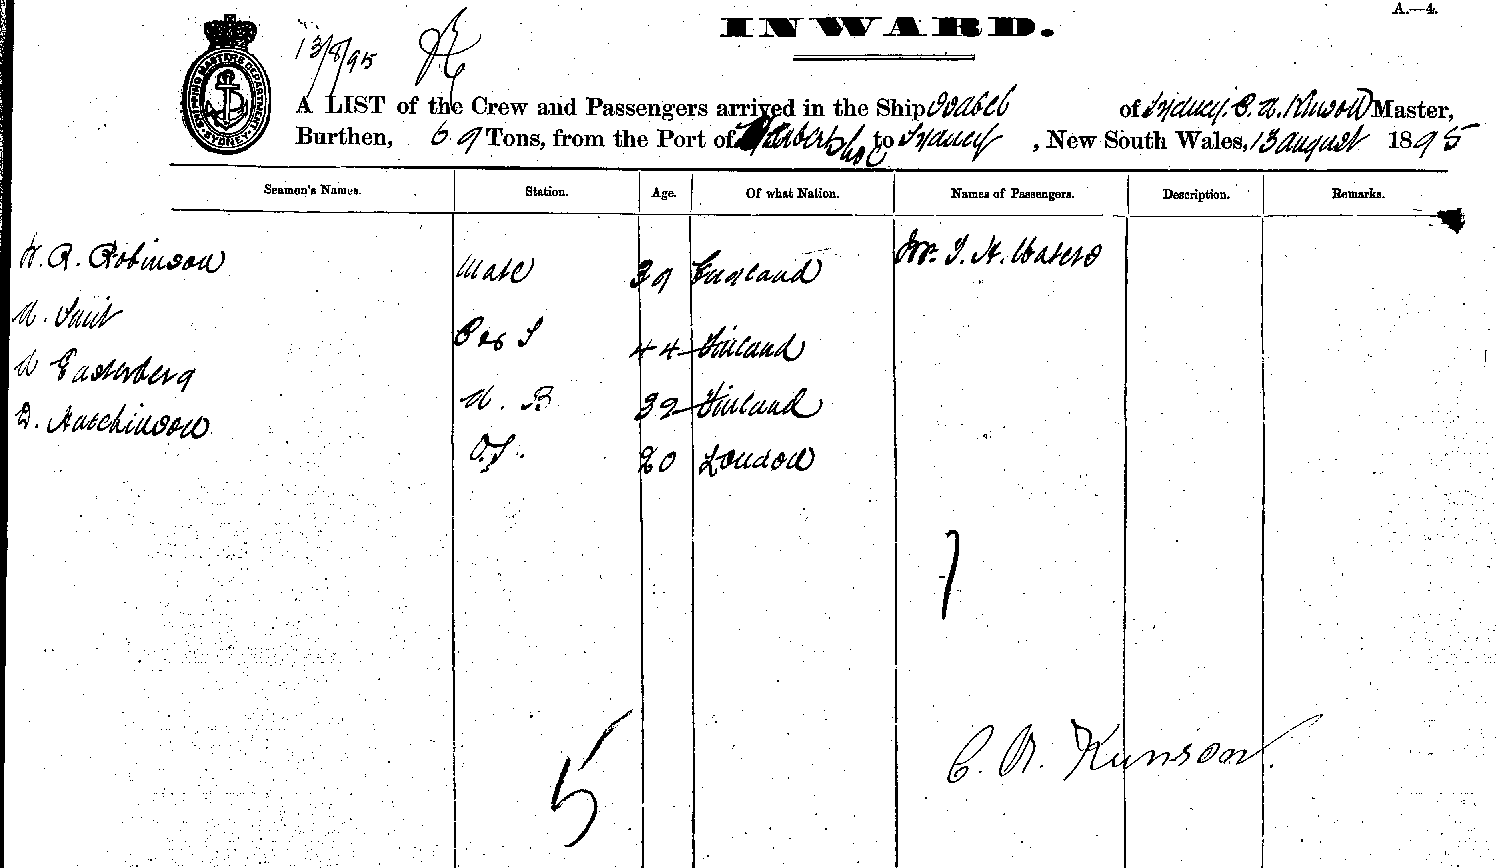 A.—4.
INWARD.
13/8/95
SHIPPING MASTERS DEPARTMENT SYDNEY
A LIST of the Crew and Passengers arrived in the Ship Isabel of Sydney. C. A. Kunson Master,
Burthen, 69 Tons, from the Port of Herbertshoe to Sydney, New South Wales, 13 August 1895
Seamen's Names. Station. Age. Of what Nation. Names of Passengers. Description. Remarks.
W. R. Robinson Mate 39 England Mr. T. H. Waters
44 Finland
A. B 32 Finland
D. Hutchinson O.S. 20 London
1
C. A. Kunson.
5